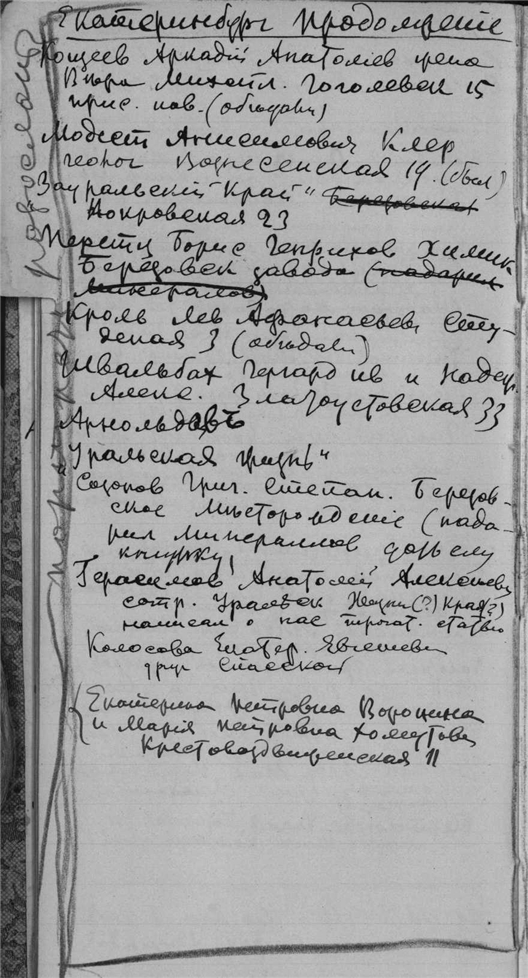 Екатеринбургъ продолженіе
Кощеев Аркадій Анатоліев жена
Вѣра Михайл. Гоголевск 15
прис. пов. (обѣдали)
Модест Анисимович Клер
геолог Вознесенская 19. (был)
"Зауральскій Край" Березовская
Покровская 23
Перетц Борис Генрихов Химик
Березовск завода (подарил
минералов)
Кроль Лев Афанасьев Сту-
деная 3 (обѣдали)
Швальбах Гергард ив и Надеж.
Алекс. Златоустовская 33
Арнольдовъ
"Уральская жизнь"
Созонов Григ. Степан. Березов-
ское Мѣсторожденіе (пода-
рил минералов
Герасимов Анатолій Алексеевич
сотр. Уральск Жизни (?) Края (?)
написал о нас трогат. статью
Колосова Екатер. Евгеньев
друг Спасской
Екатерина Петровна Воронина
и Марія Петровна Хомутова
Крестовоздвиженская 11